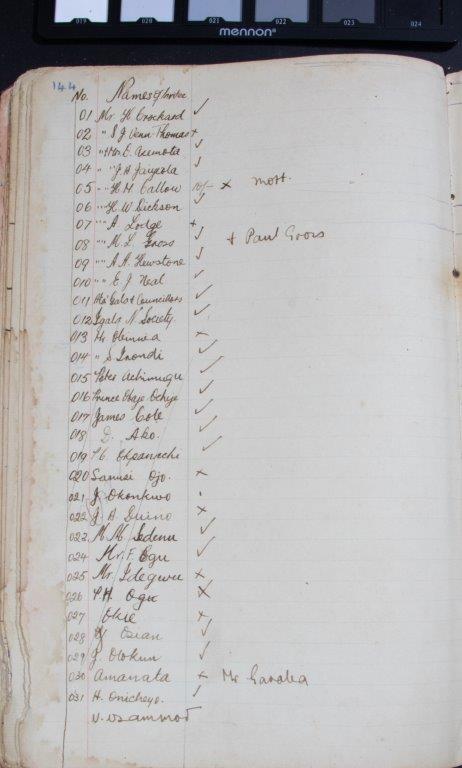 019 020 021 022 023 024
mennon
144
No. Names of Invitee
01 Mr. H. Crockard ✓
02 " S J Venn Thomas x
03 " + Mrs E. Asemota ✓
04 " " J A Jayeola ✓
05 " " H. M. Callow 10/- x Mott.
06 " " H W Dickson ✓
07 " " A Lodge x
08 " " M. L. ✓ + Paul
09 " " A. A. Hewstone ✓
010 " " E. J Neal ✓
011 Councillors ✓
012 Igala N Society ✓
013 Mr. x
014 " S. Inondi ✓
015 Peter Achimugu ✓
016 Prince Obaje Ocheje ✓
017 James Cole ✓
018 D. Ako. ✓
019 ✓
020 Sanusi Ojo. x
021 J. Okonkwo
022 J. A x
023 M. M. ✓
024 Mr. F. Ogu ✓
025 Mr. Idegwu x
026 P. H. Ogu x
027 Okie x
028 Osian ✓
029 J. Olokun ✓
030 Amanata x Mr
031 H. Onicheyo. ✓